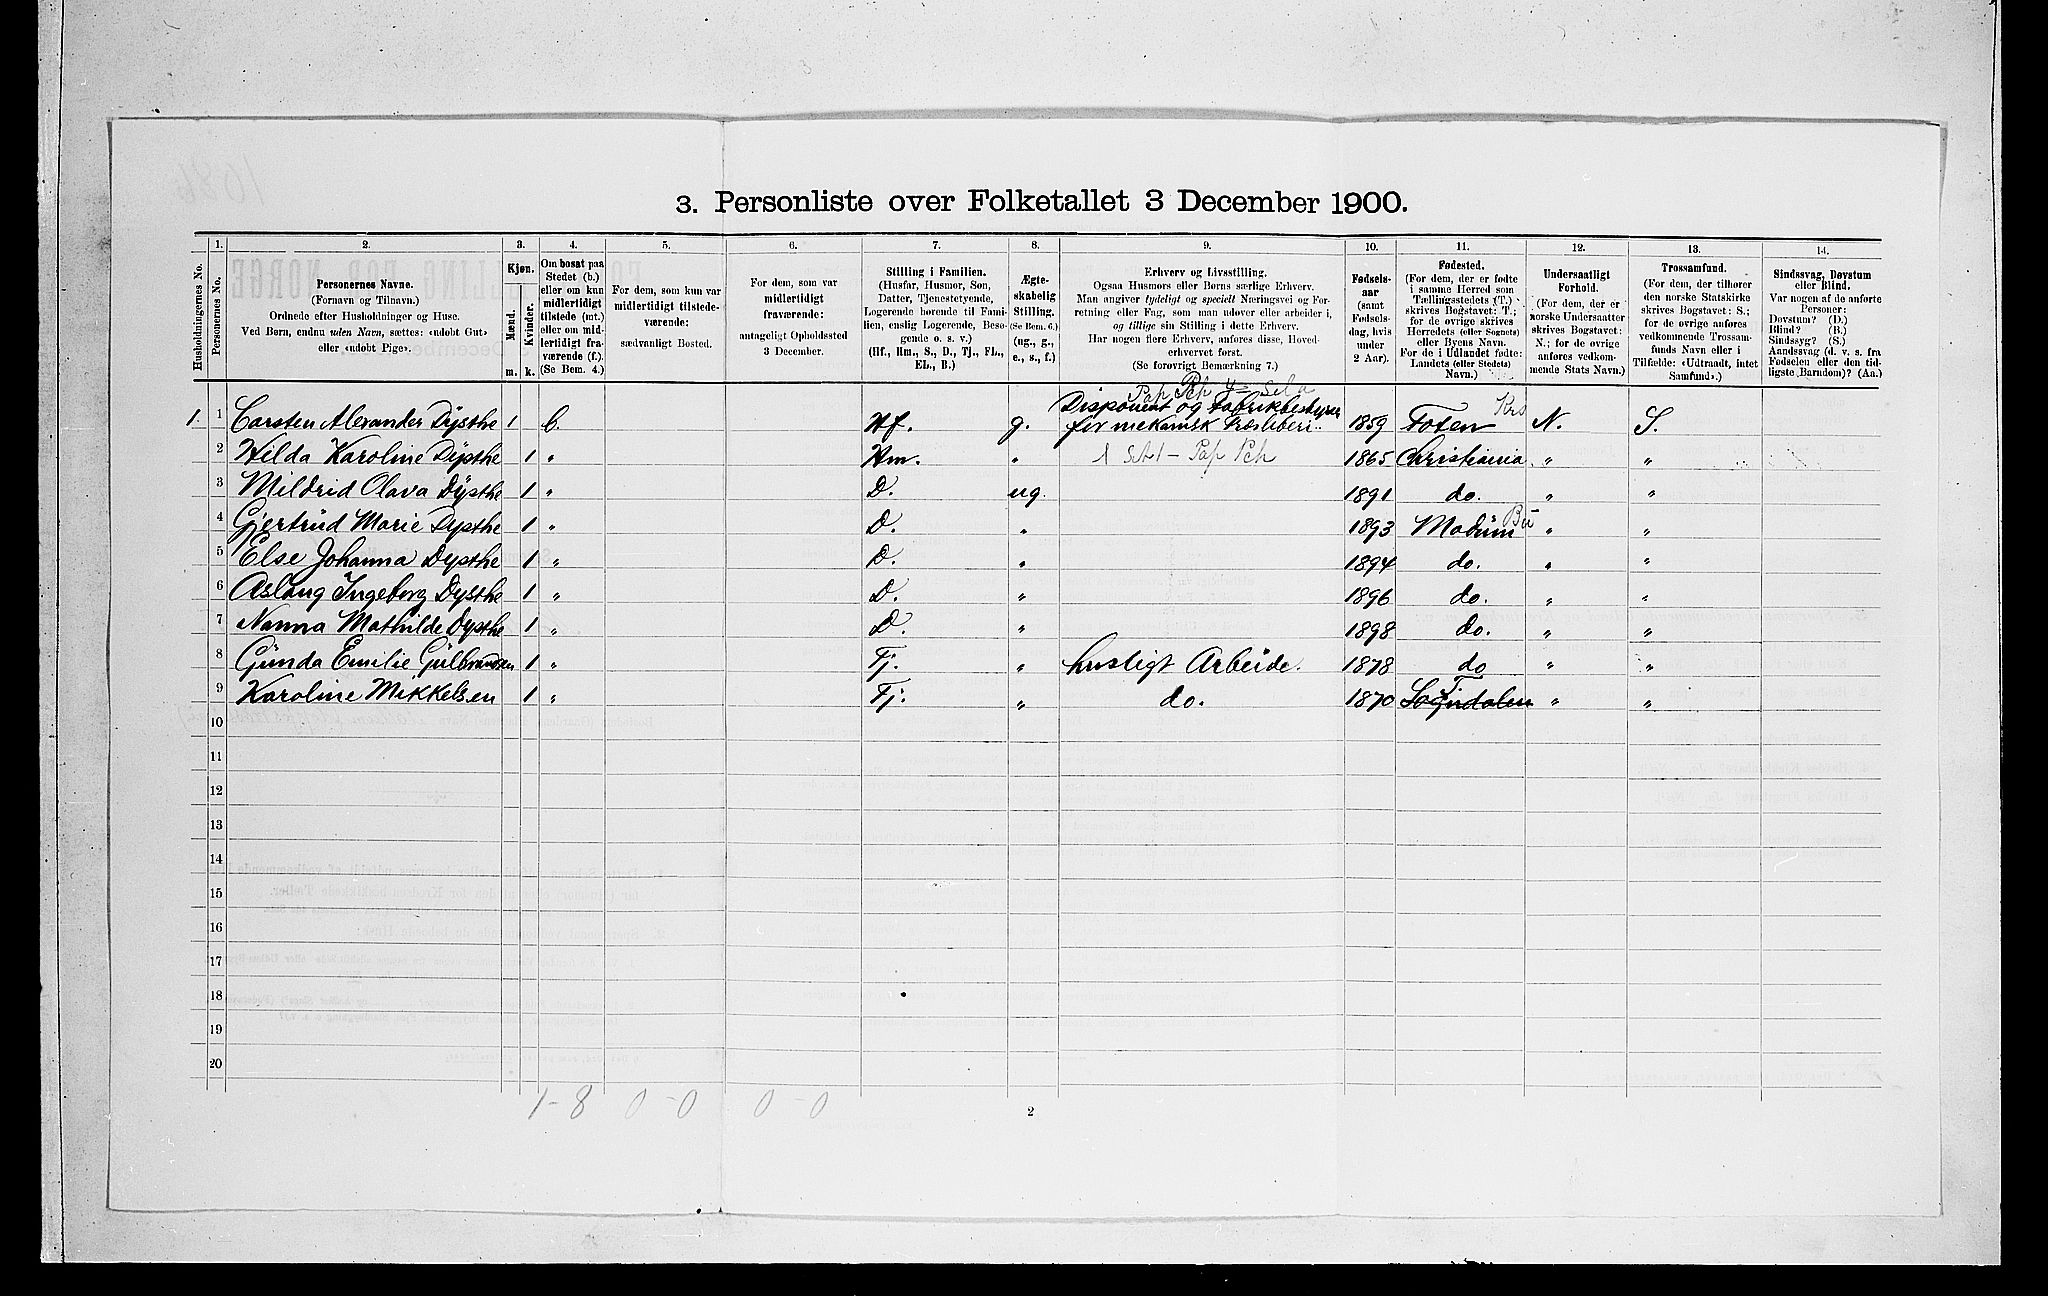 3. Personliste over Folketallet 3 December 1900.
Husholdningernes No.
1. Personernes No.
2. Personernes Navne.
(Fornavn og Tilnavn.)
Ordnede efter Husholdninger og Huse.
Ved Børn, endnu uden Navn, sættes: «udøbt Gut»
eller «udøbt Pige».
3. Kjøn.
Mænd. m.
Kvinder. k.
4. Om bosat paa
Stedet (b.)
eller om kun
midlertidigt
tilstede (mt.)
eller om mid-
lertidigt fra-
værende (f.).
(Se Bem. 4.)
5. For dem, som kun var
midlertidigt tilstede-
værende:
sædvanligt Bosted.
6. For dem, som var
midlertidigt
fraværende:
antageligt Opholdssted
3 December.
7. Stilling i Familien.
(Husfar, Husmor, Søn,
Datter, Tjenestetyende,
Logerende hørende til Fami-
lien, enslig Logerende, Besø-
gende o. s. v.)
(Hf., Hm., S., D., Tj., FL.,
EL., B.)
8. Ægte-
skabelig
Stilling.
(Se Bem. 6.)
(ug., g.,
e., s., f.)
9. Erhverv og Livsstilling.
Ogsaa Husmors eller Børns særlige Erhverv.
Man angiver tydeligt og specielt Næringsvei og For-
retning eller Fag, som man udøver eller arbeider i,
og tillige sin Stilling i dette Erhverv.
Har nogen flere Erhverv, anføres disse, Hoved-
erhvervet først.
(Se forøvrigt Bemærkning 7.)
10. Fødsels-
aar
(samt
Fødsels-
dag, hvis
under
2 Aar).
11. Fødested.
(For dem, der er fødte
i samme Herred som
Tællingsstedets (T.)
skrives Bogstavet: T.;
for de øvrige skrives
Herredets (eller Sognets)
eller Byens Navn.
For de i Udlandet fødte:
Landets (eller Stedets)
Navn.)
12. Undersaatligt
Forhold.
(For dem, der er
norske Undersaatter
skrives Bogstavet:
N.; for de øvrige
anføres vedkom-
mende Stats Navn.)
13. Trossamfund.
(For dem, der tilhører
den norske Statskirke
skrives Bogstavet: S.;
for de øvrige anføres
vedkommende Trossam-
funds Navn eller i
Tilfælde: «Udtraadt, intet
Samfund».)
14. Sindssvag, Døvstum
eller Blind.
Var nogen af de anførte
Personer:
Døvstum? (D.)
Blind? (B.)
Sindssyg? (S.)
Aandssvag (d. v. s. fra
Fødselen eller den tid-
ligste Barndom)? (Aa.)
Disponent og Fabrikbestyrer
1. 1 Carsten Alexander Dysthe 1 b. Hf. g. for mekanisk Træsliberi. 1859 Toten N. S.
2 Hilda Karoline Dysthe 1 " Hm. " 1865 Christiania " "
3 Mildrid Olava Dysthe 1 " D. ug. 1891 do. " "
4 Gjertrud Marie Dysthe 1 " D. " 1893 Modum " "
5 Else Johanna Dysthe 1 " D. " 1894 do. " "
6 Aslaug Ingeborg Dysthe 1 " D. " 1896 do. " "
7 Nanna Mathilde Dysthe 1 " D. " 1898 do. " "
8 Gunda Emilie Gulbrandsen 1 " Tj. " husligt Arbeide. 1878 do " "
9 Karoline Mikkelsen 1 " Tj. " do. 1870 T " "
10
11
12
13
14
15
16
17
18
19
20
1-8 0-0 0-0
2